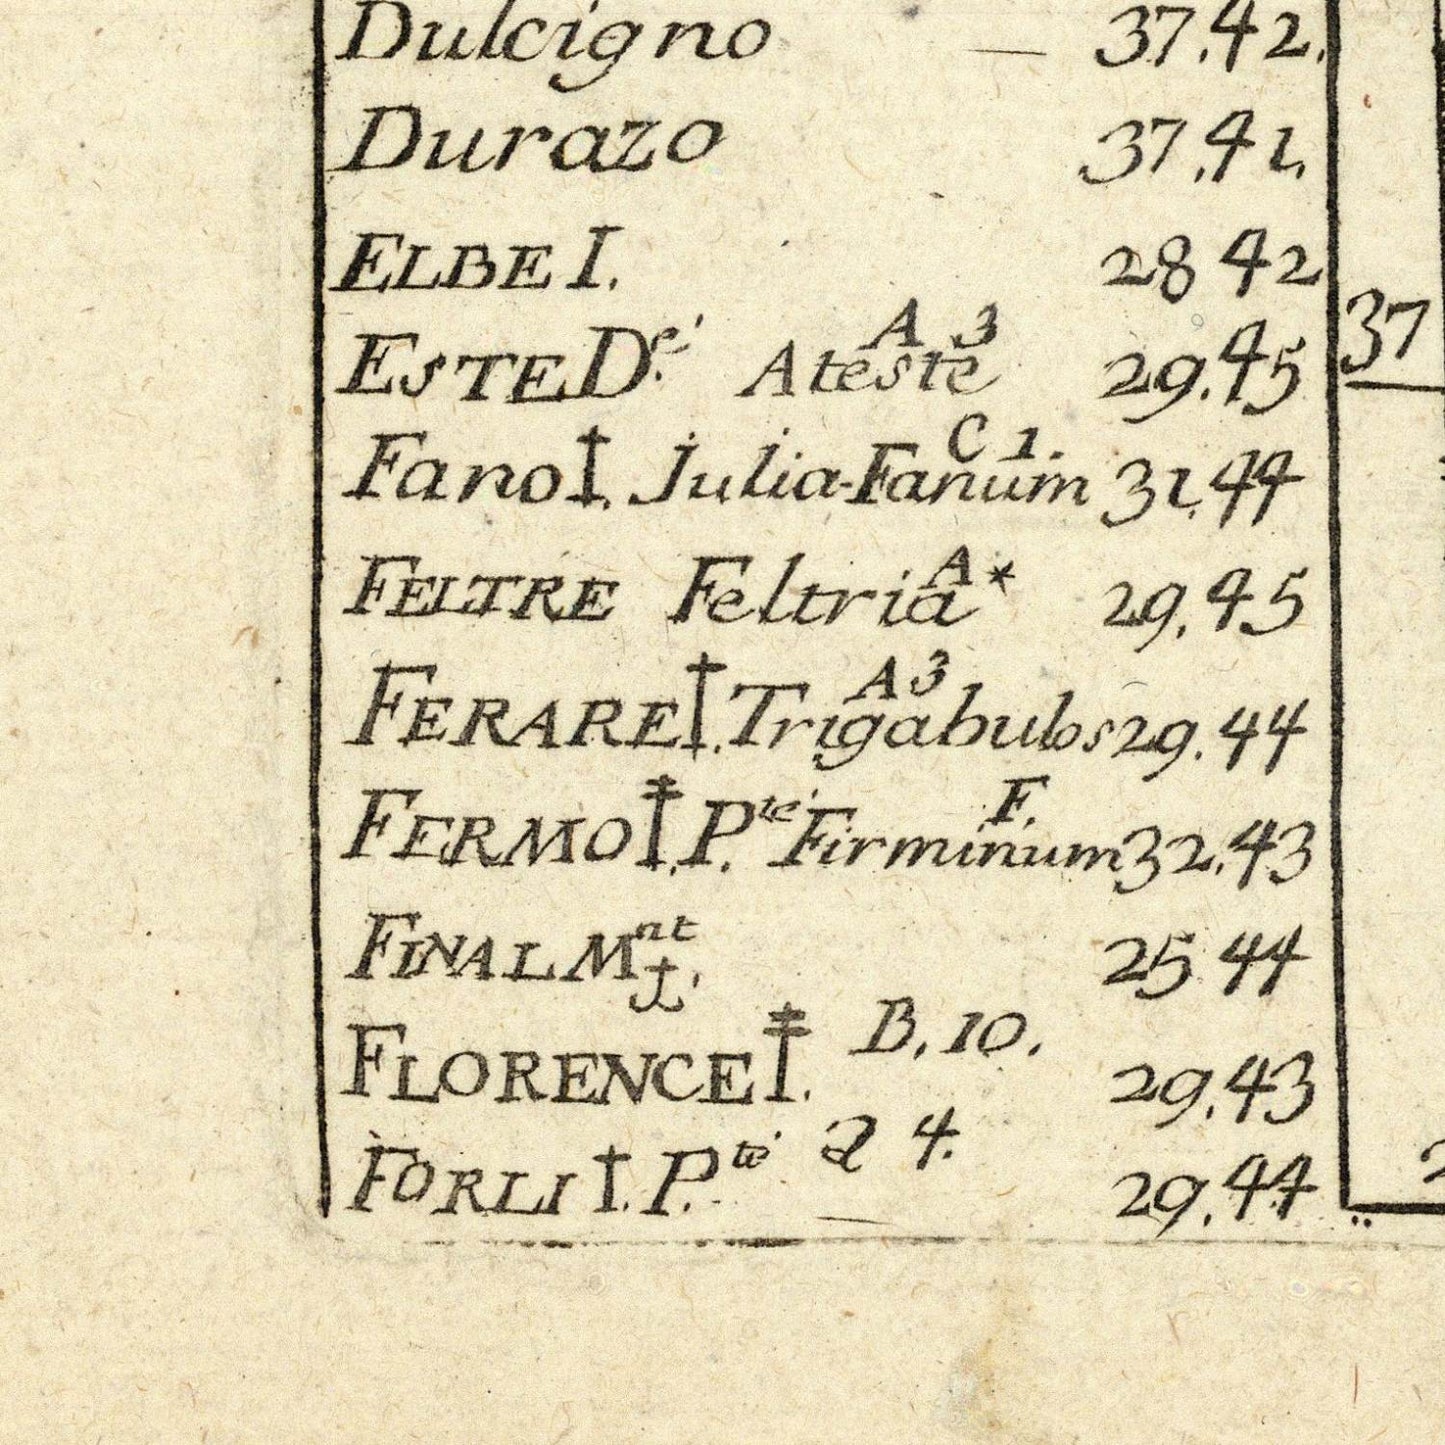 Dulcigno — 37.42.
Durazo 37.41.
ELBE I. 28 42
37
ESTE D.é Ateste A 3 29.45
Fano†. Julia-Fanum C 1. 31.44
FELTRE Feltria A* 29.45
FERARE†. Trigabulos A3 29.44
FERMO‡. P.té Firminum F. 32.43
FINAL Mnt ⚓. 25 44
FLORENCE‡. B. 10. 29.43
FORLI†. P.té 4. 29.44